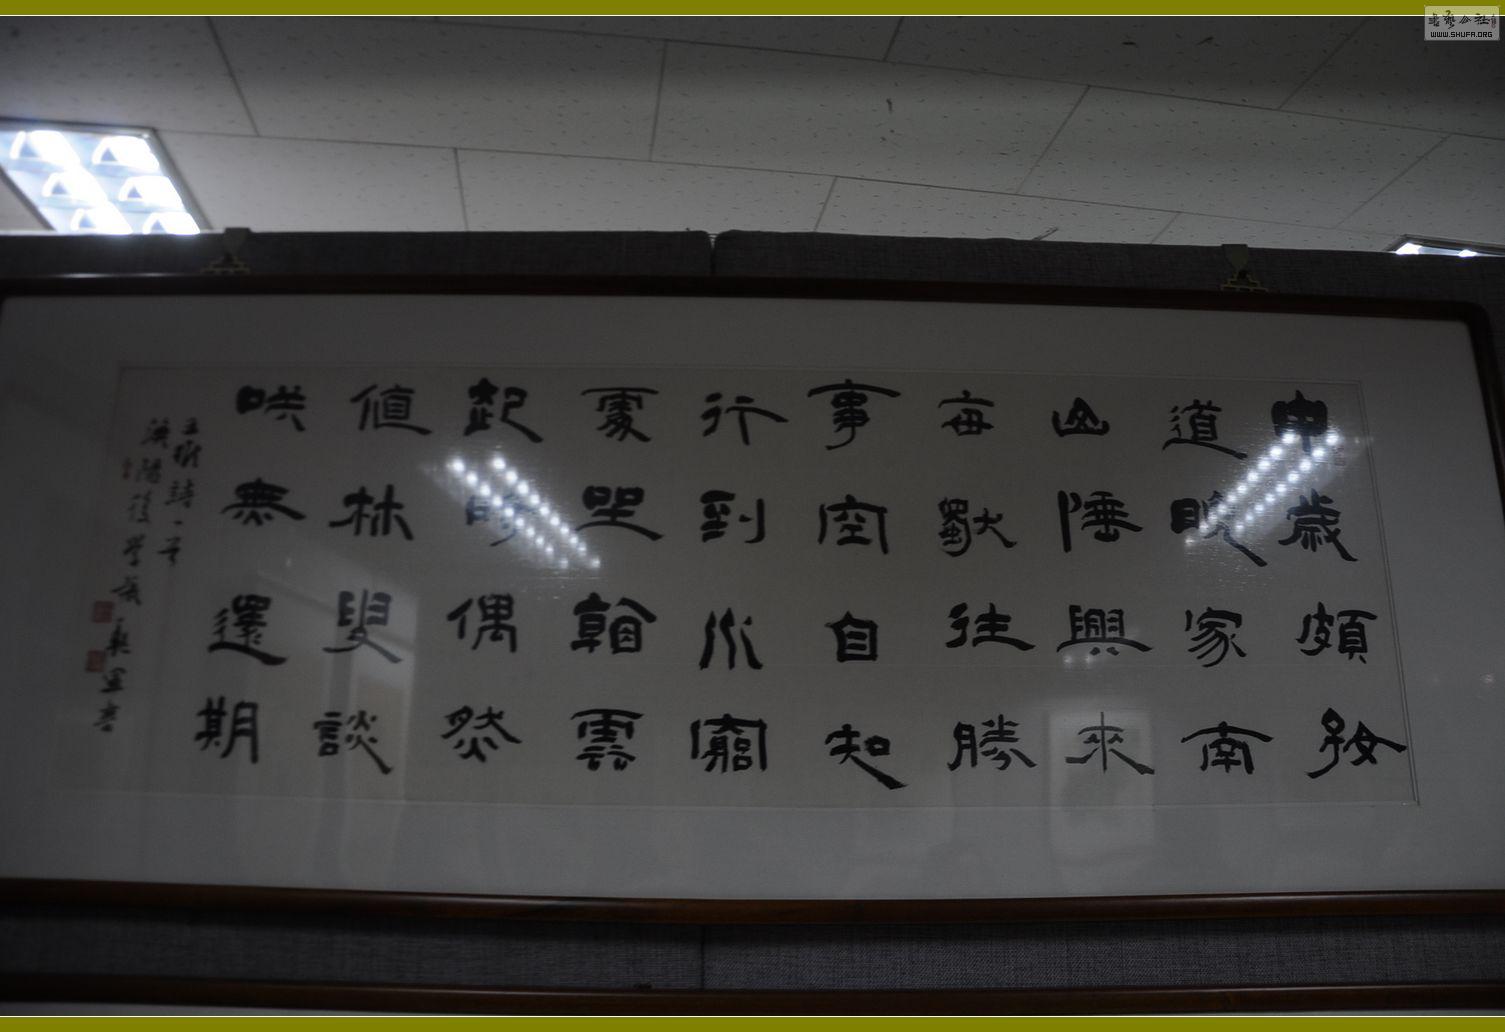 中歲頗好
道晚家南
山陲興來
每獨往勝
事空自知
行到水窮
處坐看雲
起時偶然
值林叟談
咲無還期
王維詩一首
陽後學 軍書
書藝公社
WWW.SHUFA.ORG